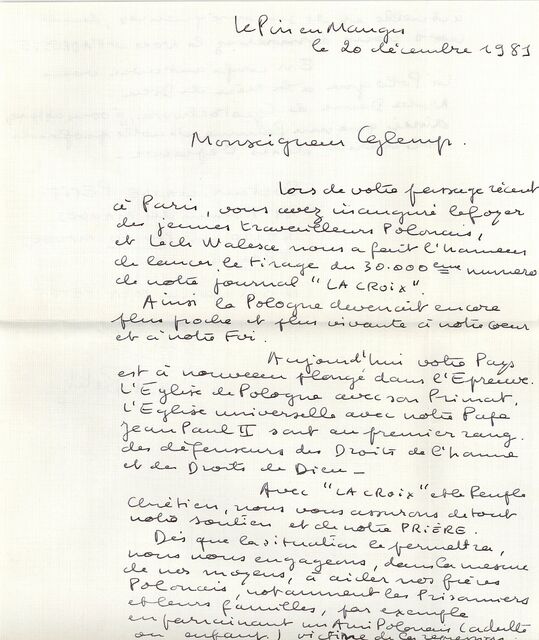 Le Pin en Mauges
le 20 décembre 1981
Monseigneur Glemp.
Lors de votre passage récent
à Paris, vous avez inauguré le foyer
des jeunes travailleurs Polonais,
et Lech Walesa nous a fait l'honneur
de lancer le tirage du 30.000ème numéro
de notre journal "LA CROIX".
Ainsi la Pologne devenait encore
plus proche et plus vivante à notre coeur
et à notre Foi.
Aujourd'hui votre Pays
est à nouveau plongé dans l'Epreuve.
L'Église de Pologne avec son Primat,
l'Église universelle avec notre Pape
Jean Paul II sont au premier rang
des défenseurs des Droits de l'homme
et des Droits de Dieu _
Avec "LA CROIX" et le Peuple
Chrétien, nous vous assurons de tout
notre soutien et de notre PRIÈRE.
Dès que la situation le permettra,
nous nous engageons, dans la mesure
de nos moyens, à aider nos frères
Polonais, notamment les Prisonniers
et leurs familles, par exemple
en parrainant un Ami Polonais (adulte
ou enfant) victime de la